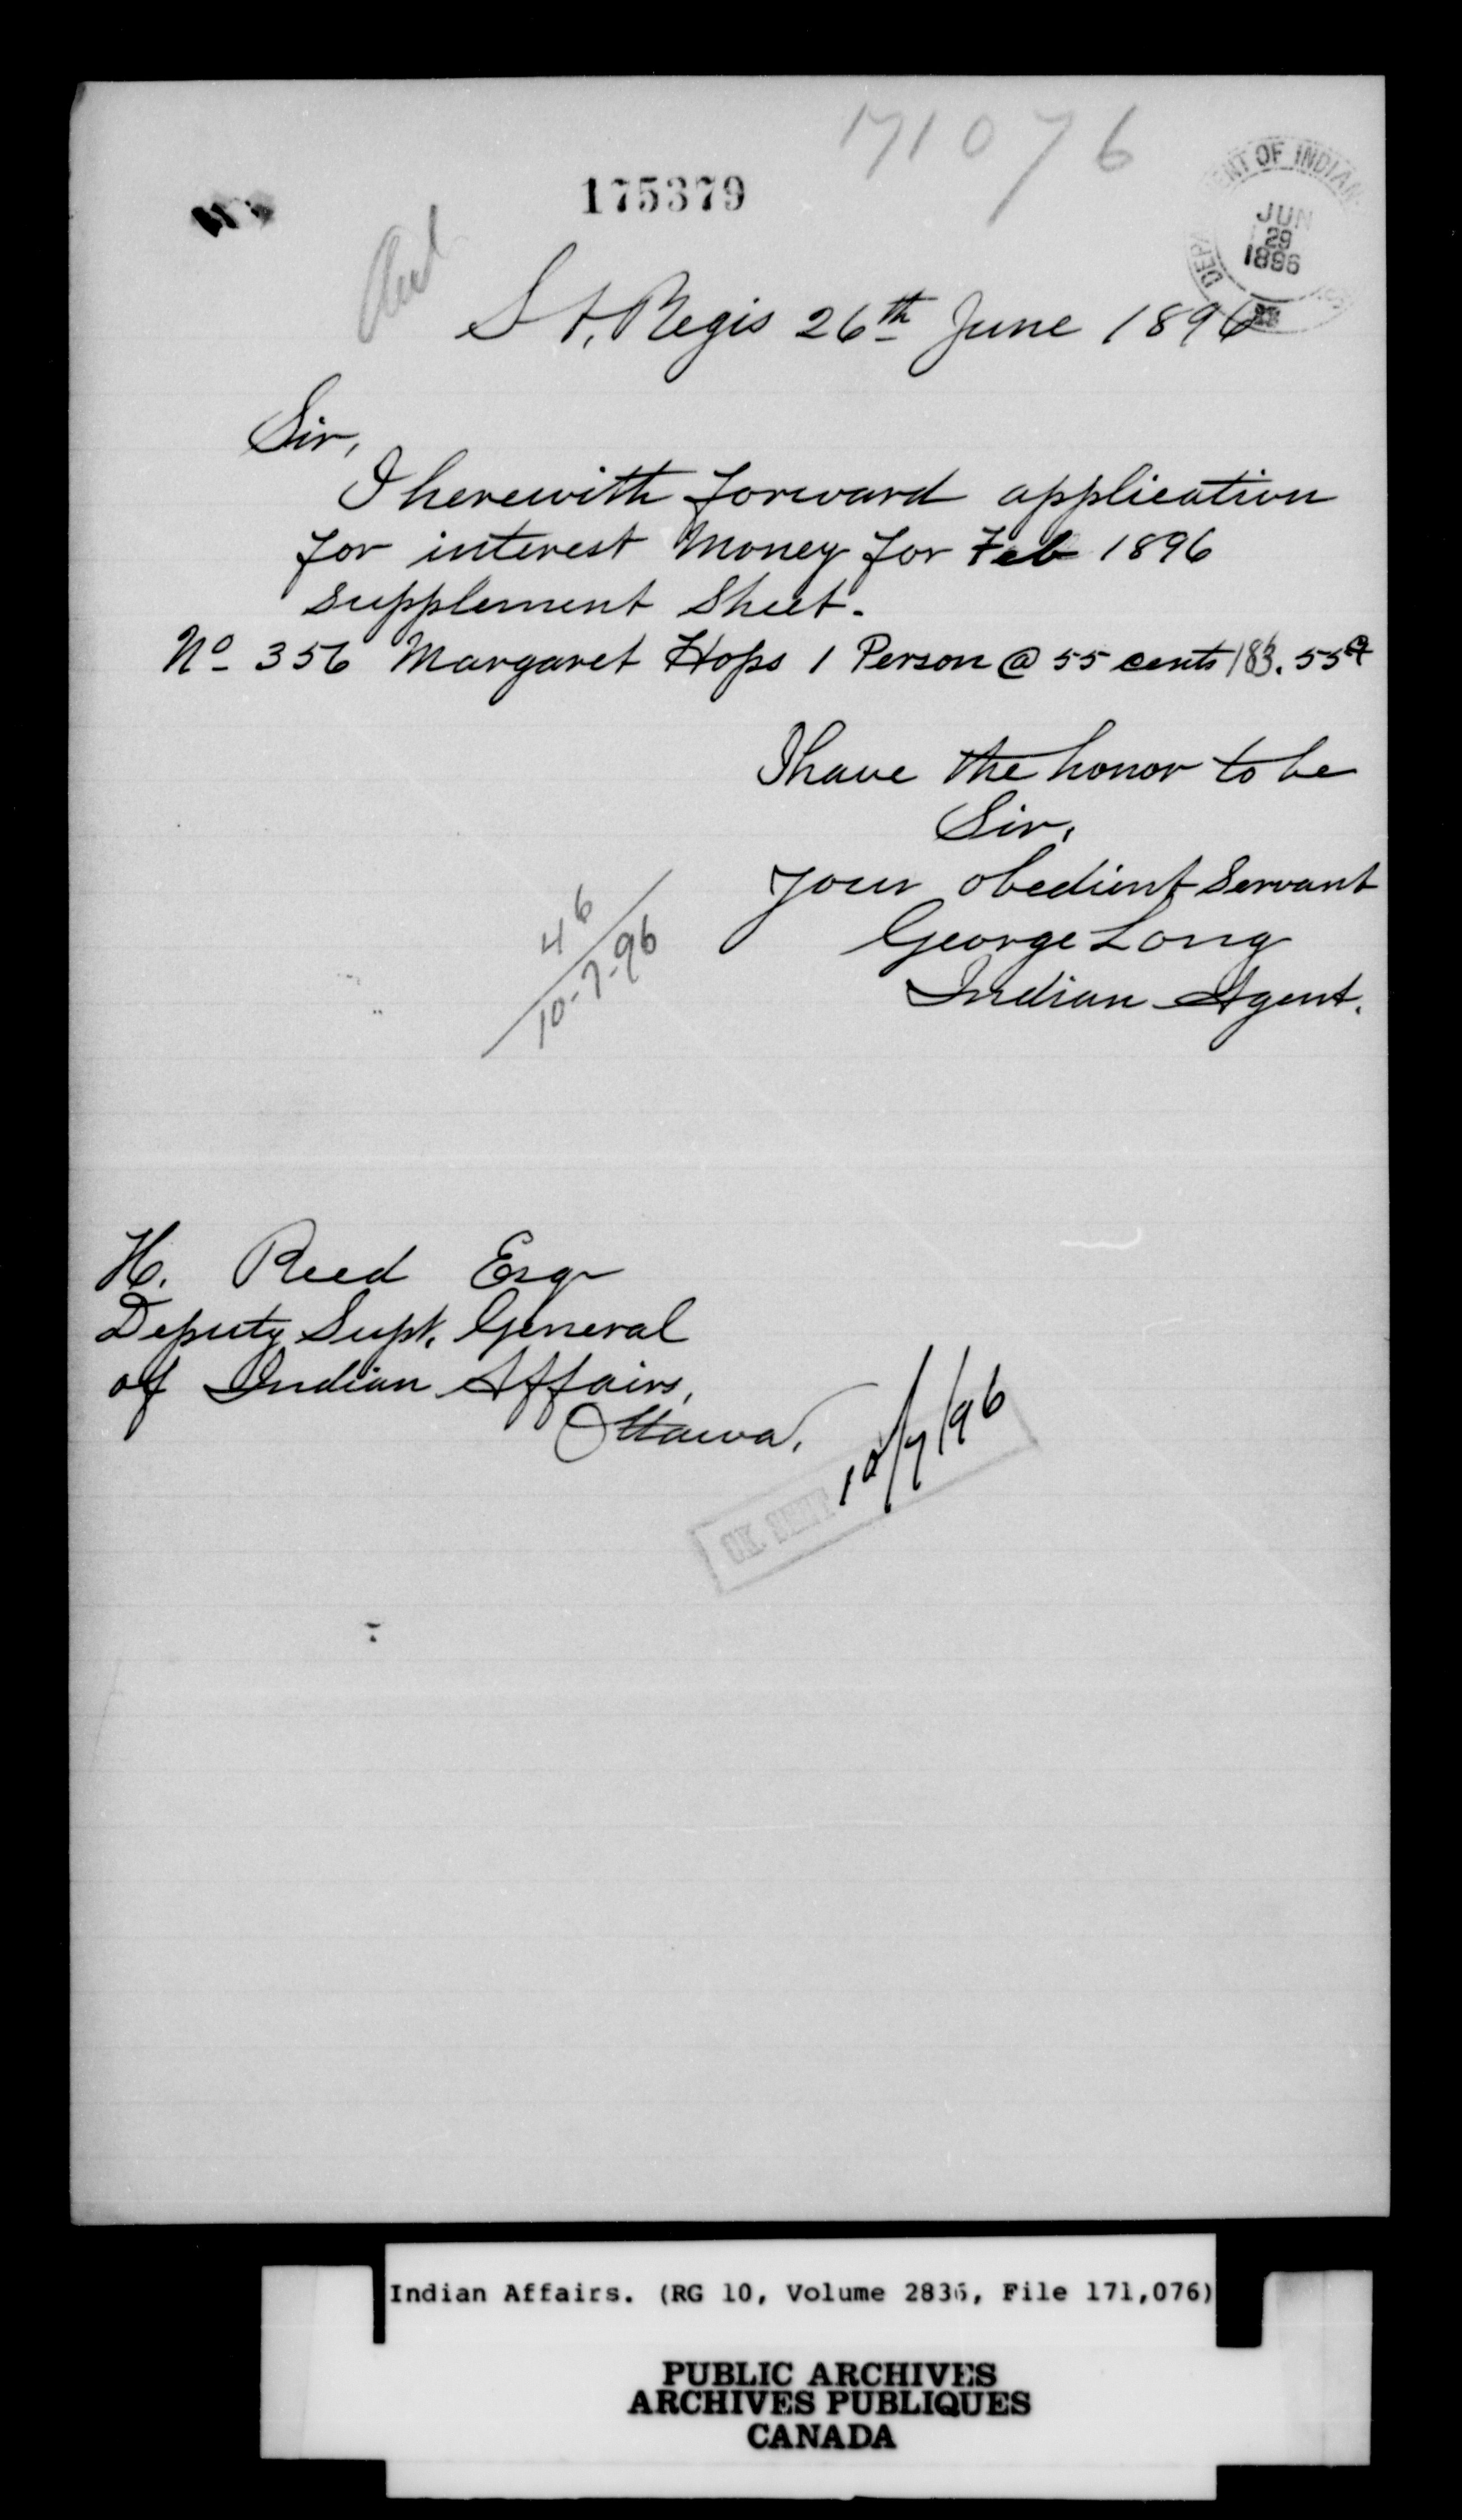 171076
175379
DEPARTMENT OF INDIAN
JUN
29
1896
St. Regis 26th June 1896
Sir,
I herewith forward application
for interest Money for Feb 1896
supplement Sheet.
No 356 Margaret Hops 1 Person @ 55 cents .55
I have the honor to be
Sir,
your obedient Servant
George Long
Indian Agent.
46
10-7-96
H. Reed Esqr
Deputy Supt. General
of Indian Affairs,
Ottawa.
CK SENT 10/7/96
Indian Affairs. (RG 10, Volume 2836, File 171,076)
PUBLIC ARCHIVES
ARCHIVES PUBLIQUES
CANADA